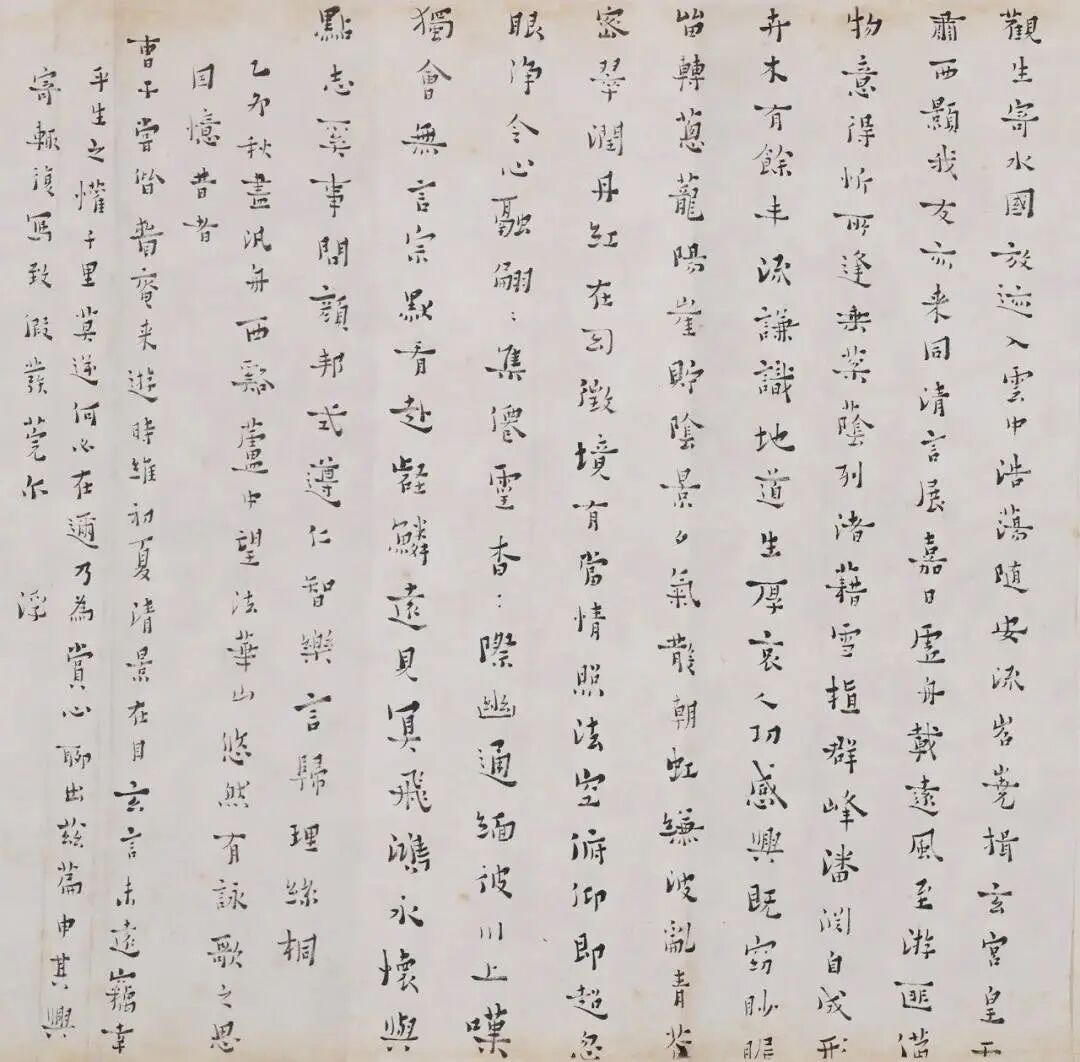 觀生寄水國放迹入雲中浩蕩随安流岧嶤揖玄宮皇天
肅西顥我友亦来同清言展嘉日虛舟戴遠風至游匪借
物意得忻所逢乘葉蔭列渚藉雪指群峰潘淵自成形
卉木有餘丰流謙識地道生厚哀人功感興既窈眇昵
轉蔥蘢陽崖貯陰景夕氣散朝虹縑波亂青蒼
密翠潤丹紅在図徵境有當情照法空俯仰即超忽
眼淨令心融翩:集僊靈杳:際幽通緬彼川上嘆
獨會無言宗默看赴壑鱗遠見冥飛鴻永懷與
點志奚事問顏邦式遵仁智樂言歸理絲桐
乙卯秋晝汎舟西谿蘆中望法華山悠然有詠歌之思
因憶昔者
曹子嘗偕眘庵来遊時維初夏清景在目玄言未遠竊幸
平生之懽千里莫逆何必在邇乃為賞心聊出茲篇申其興
寄輒復寫致假發莞尔 浮